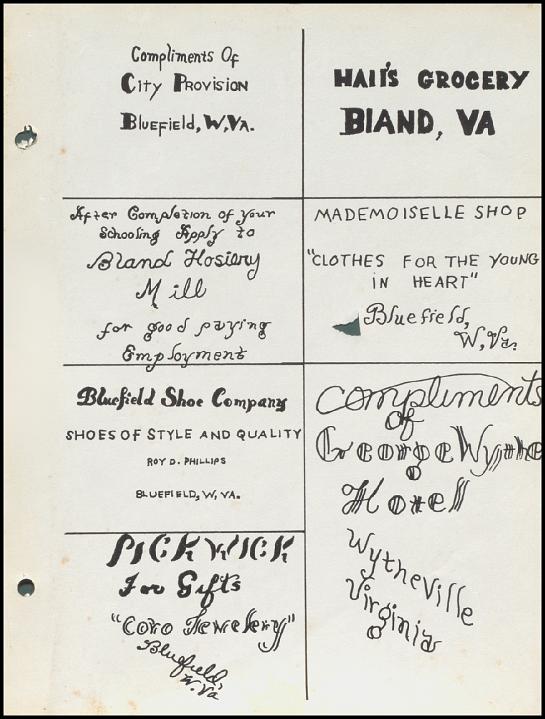 Compliments Of
City Provision
Bluefield, W.Va.
HAll'S GROCERY
BlAND, VA
After Completion of your
Schooling Apply to
Bland Hosiery
Mill
for good paying
Employment
MADEMOISELLE SHOP
"CLOTHES FOR THE YOUNG
IN HEART"
Bluefield,
W,Va.
Bluefield Shoe Company
SHOES OF STYLE AND QUALITY
ROY D. PHILLIPS
BLUEFIELD, W, VA.
PICKWICK
For Gifts
"Coro Jewelery"
Bluefield,
W.Va
Compliments
of
George Wythe
Hotel
Wytheville
Virginia